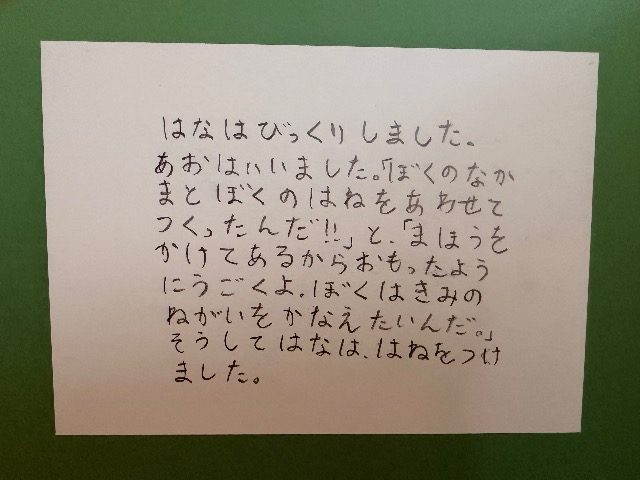 はなはびっくりしました。
あおはいいました。「ぼくのなか
まとぼくのはねをあわせて
つくったんだ!!」と、「まほうを
かけてあるからおもったよう
にうごくよ。ぼくはきみの
ねがいをかなえたいんだ。」
そうしてはなは、はねをつけ
ました。